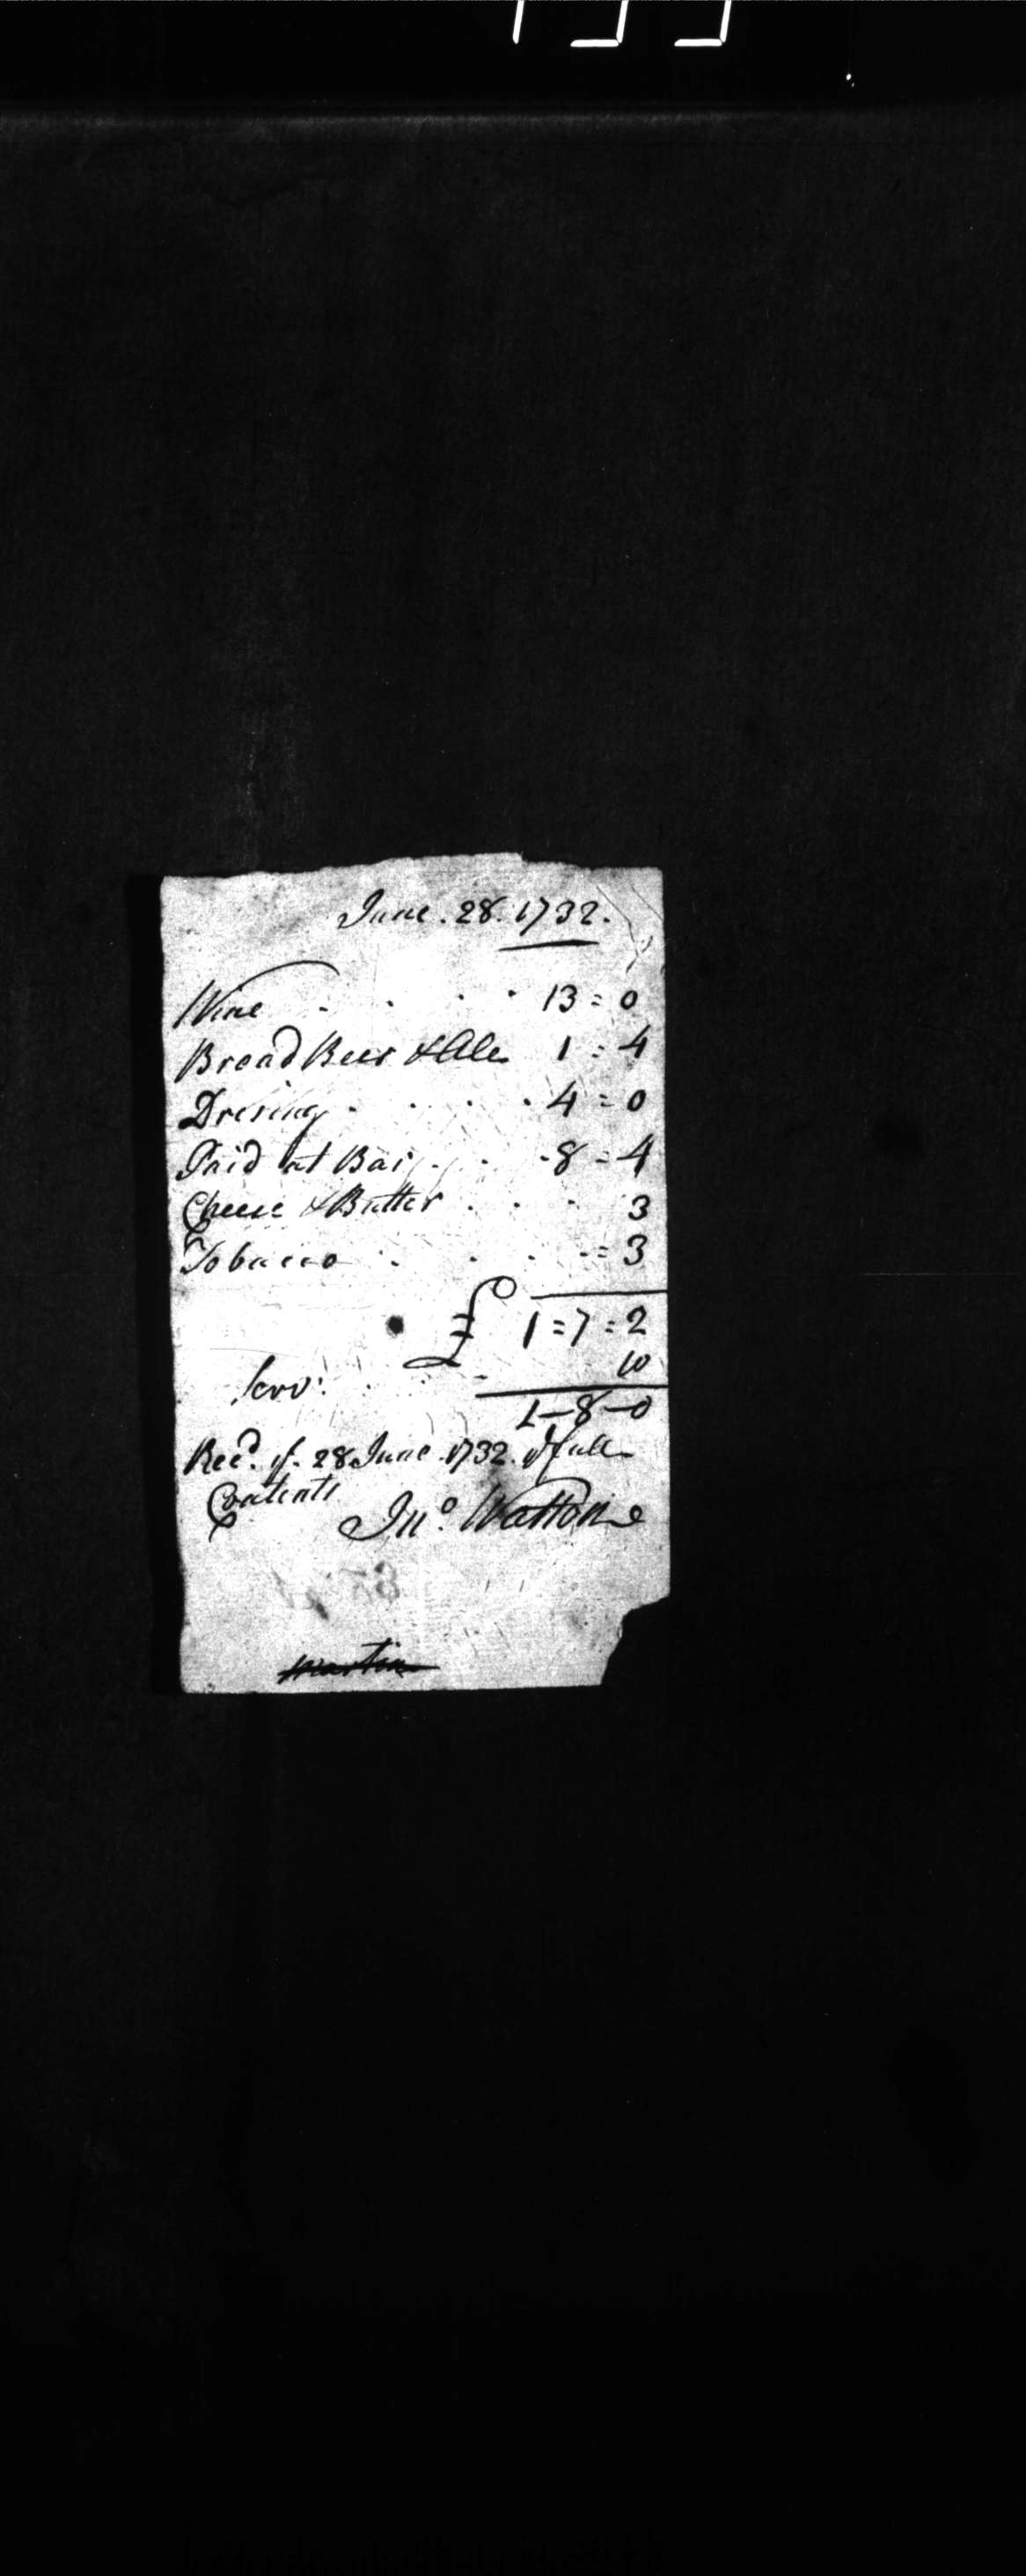 June. 28. 1732.
Wine . . . . 13 = 0
Bread Beer & Ale 1 : 4
Dresing . . . . 4 = 0
Paid at Bar . . . 8 = 4
Cheese & Butter . . . 3
Tobacco . . . . = 3
£ 1 = 7 = 2
Serv.t . . . 10
1 — 8 — 0
Rec.d y.e 28 June 1732. y.e full
Contents
Jn.o Watton
martin